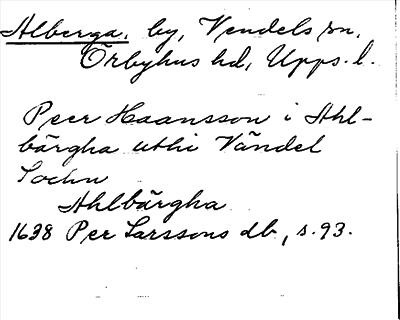 Alberga, by, Vendels sn,
Örbyhus hd, Upps. l.
Peer Haansson i Ahl-
bärgha uthi Vändel
Sochn
Ahlbärgha
1638 Per Larssons db, s. 93.